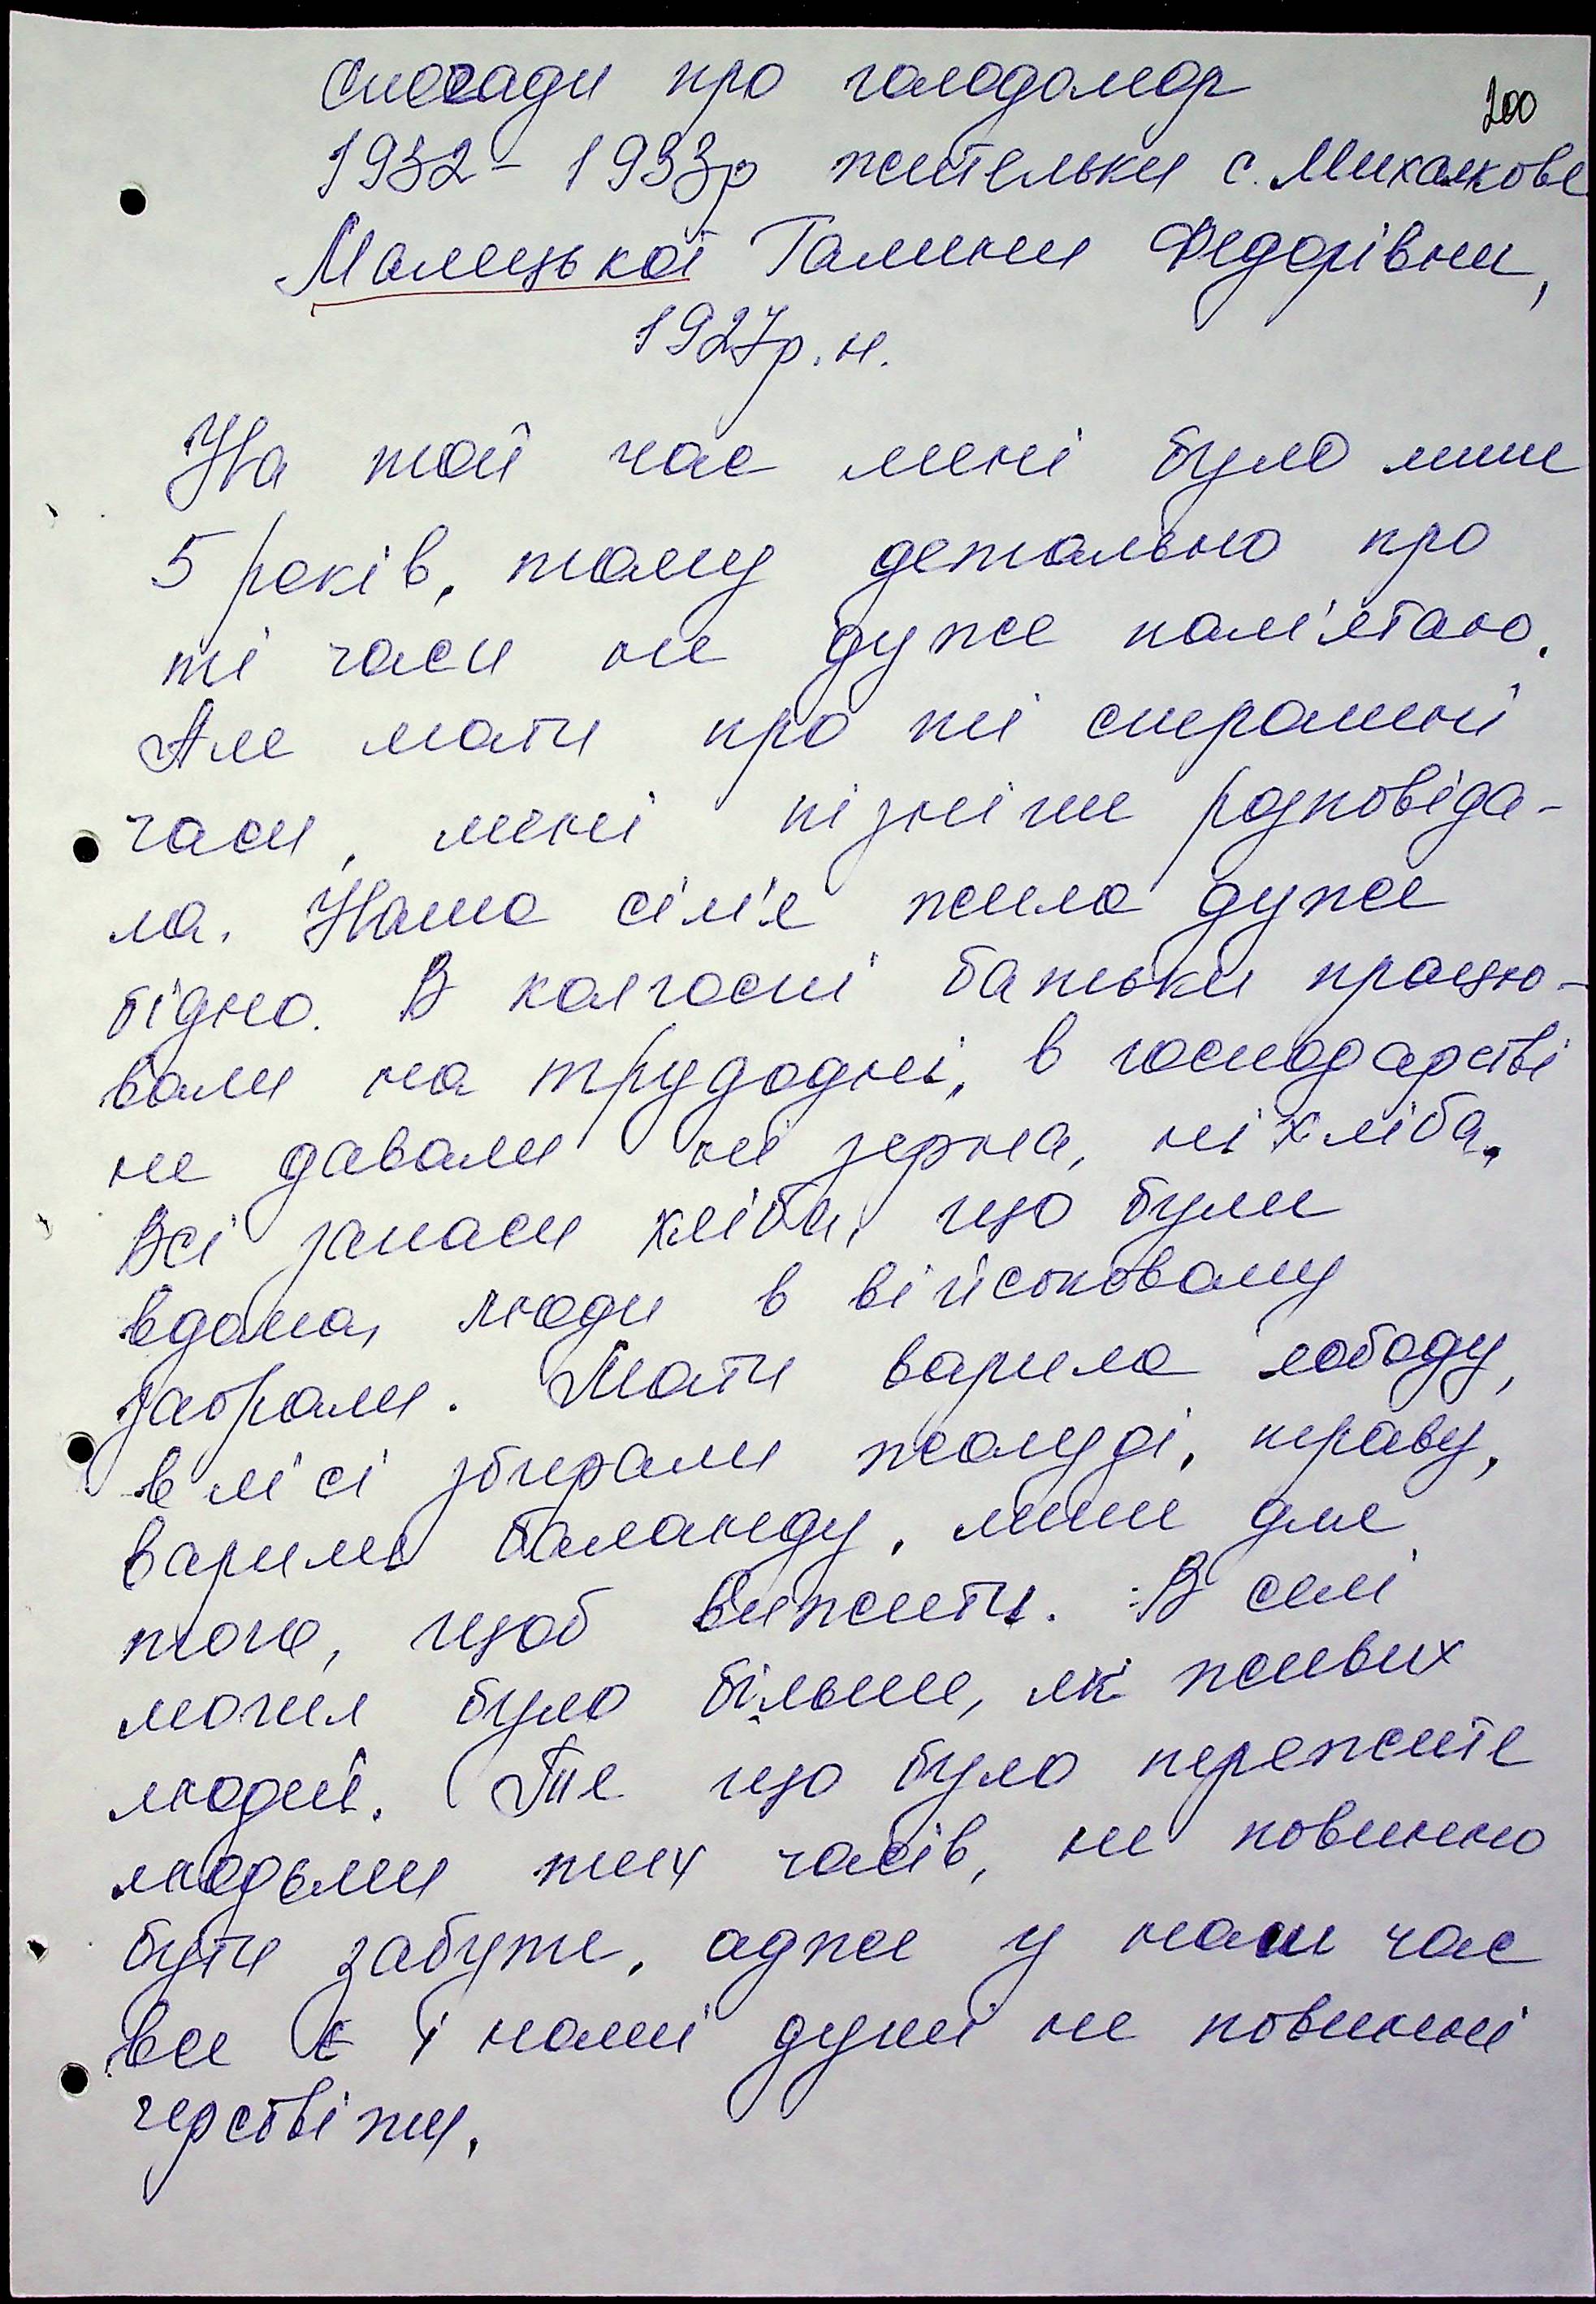 Спогади про голодомор
200
1932-1933р жительки с. Михалкове
Малецької Галини Федорівни,
1927р.н.
На той час мені було лише
5 років, тому детально про
ті часи не дуже пам'ятаю.
Але мати про ті страшні
часи, мені пізніше розповіда-
ла. Наша сім'я жила дуже
бідно. В колгоспі батьки працю-
вали на трудодні, в господарстві
не давали ні зерна, ні хліба.
Всі запаси хліба, що були
вдома, люди в військовому
забрали. Мати варила лободу,
в лісі збирали жолуді, траву,
варили баланду, лише для
того, щоб вижити. В селі
могил було більше, як живих
людей. Те що було пережите
людьми тих часів, не повинно
бути забуте, адже у наш час
все є і наші душі не повинні
черствіти.